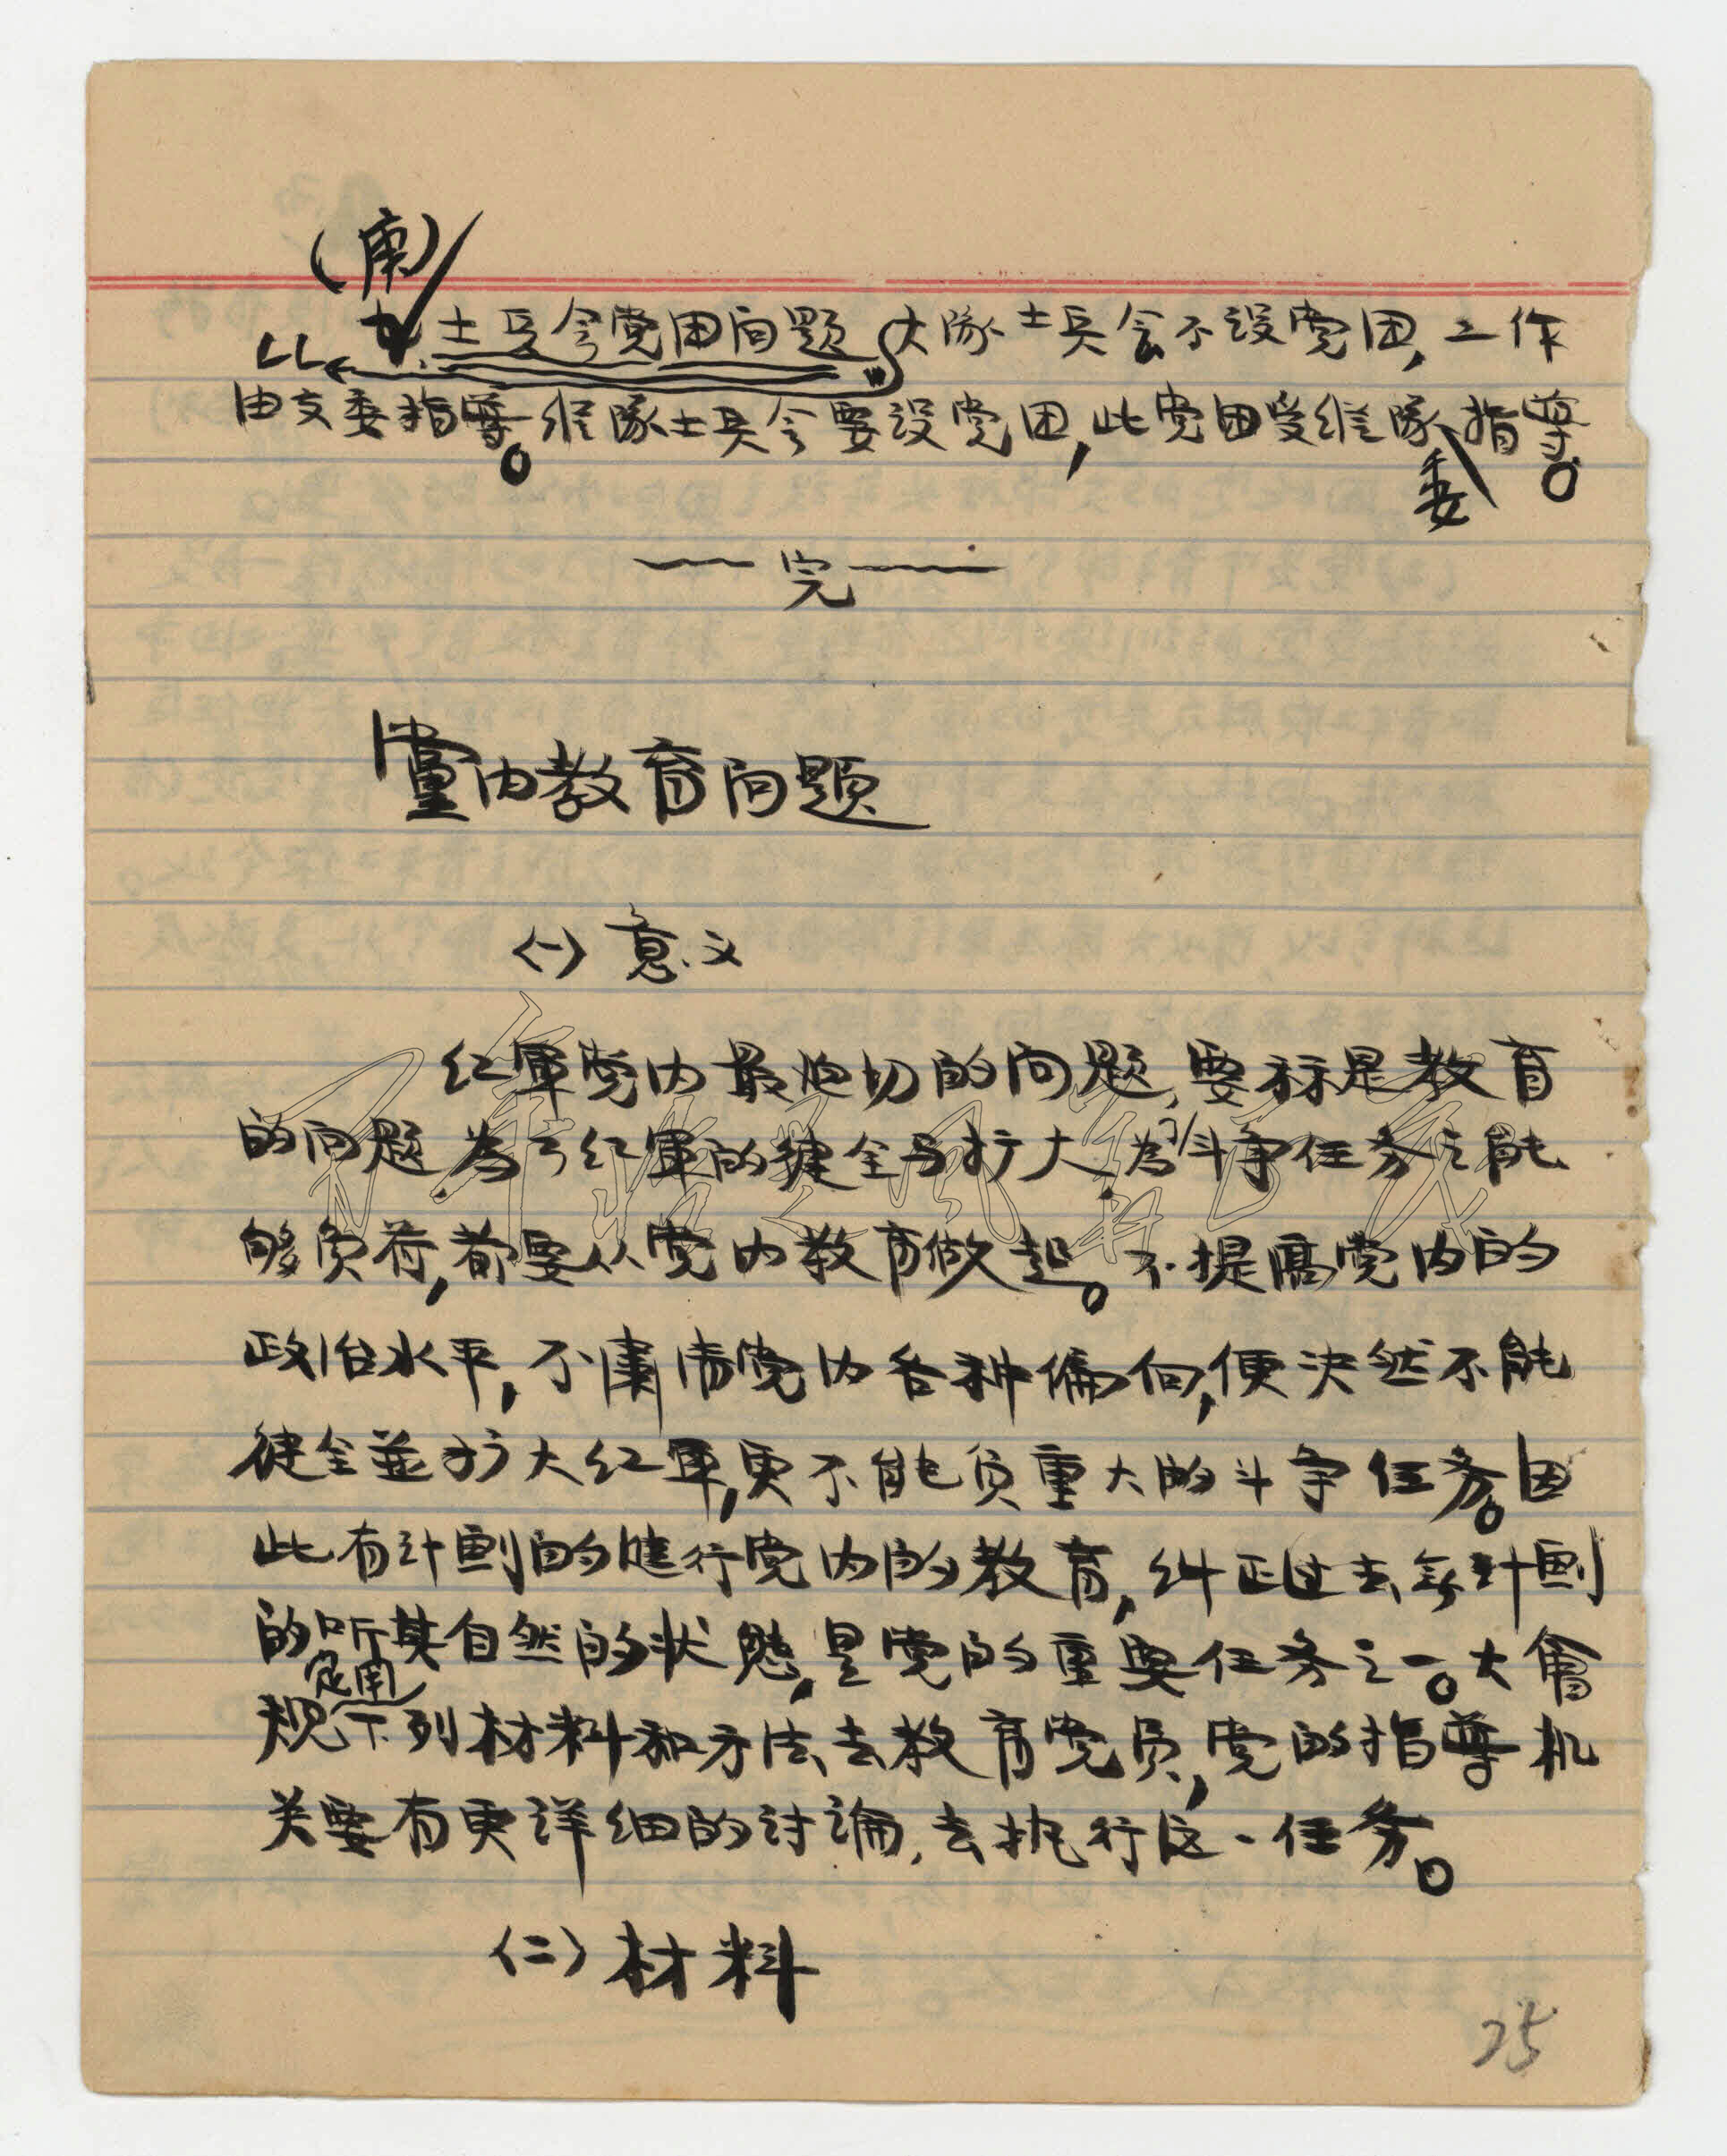 (庚)
七.士兵会党团问题 大队士兵会不设党团,工作
由支委指导。纵队士兵会要设党团,此党团受纵队委指导。
——完——
党内教育问题
(一)意义
红軍党内最迫切的问题,要祘是教育
的问题.為了红軍的健全与扩大,為了斗争任务之能
够负荷,都要从党内教育做起。不提高党内的
政治水平,不肃清党内各种偏向,便决然不能
健全並扩大红軍,更不能负重大的斗争任务。因
此有计劃的進行党内的教育,纠正过去無计劃
的听其自然的状态,是党的重要任务之一。大會
规定用下列材料和方法去教育党员,党的指导机
关要有更详细的讨论,去执行这一任务。
(二)材料
25